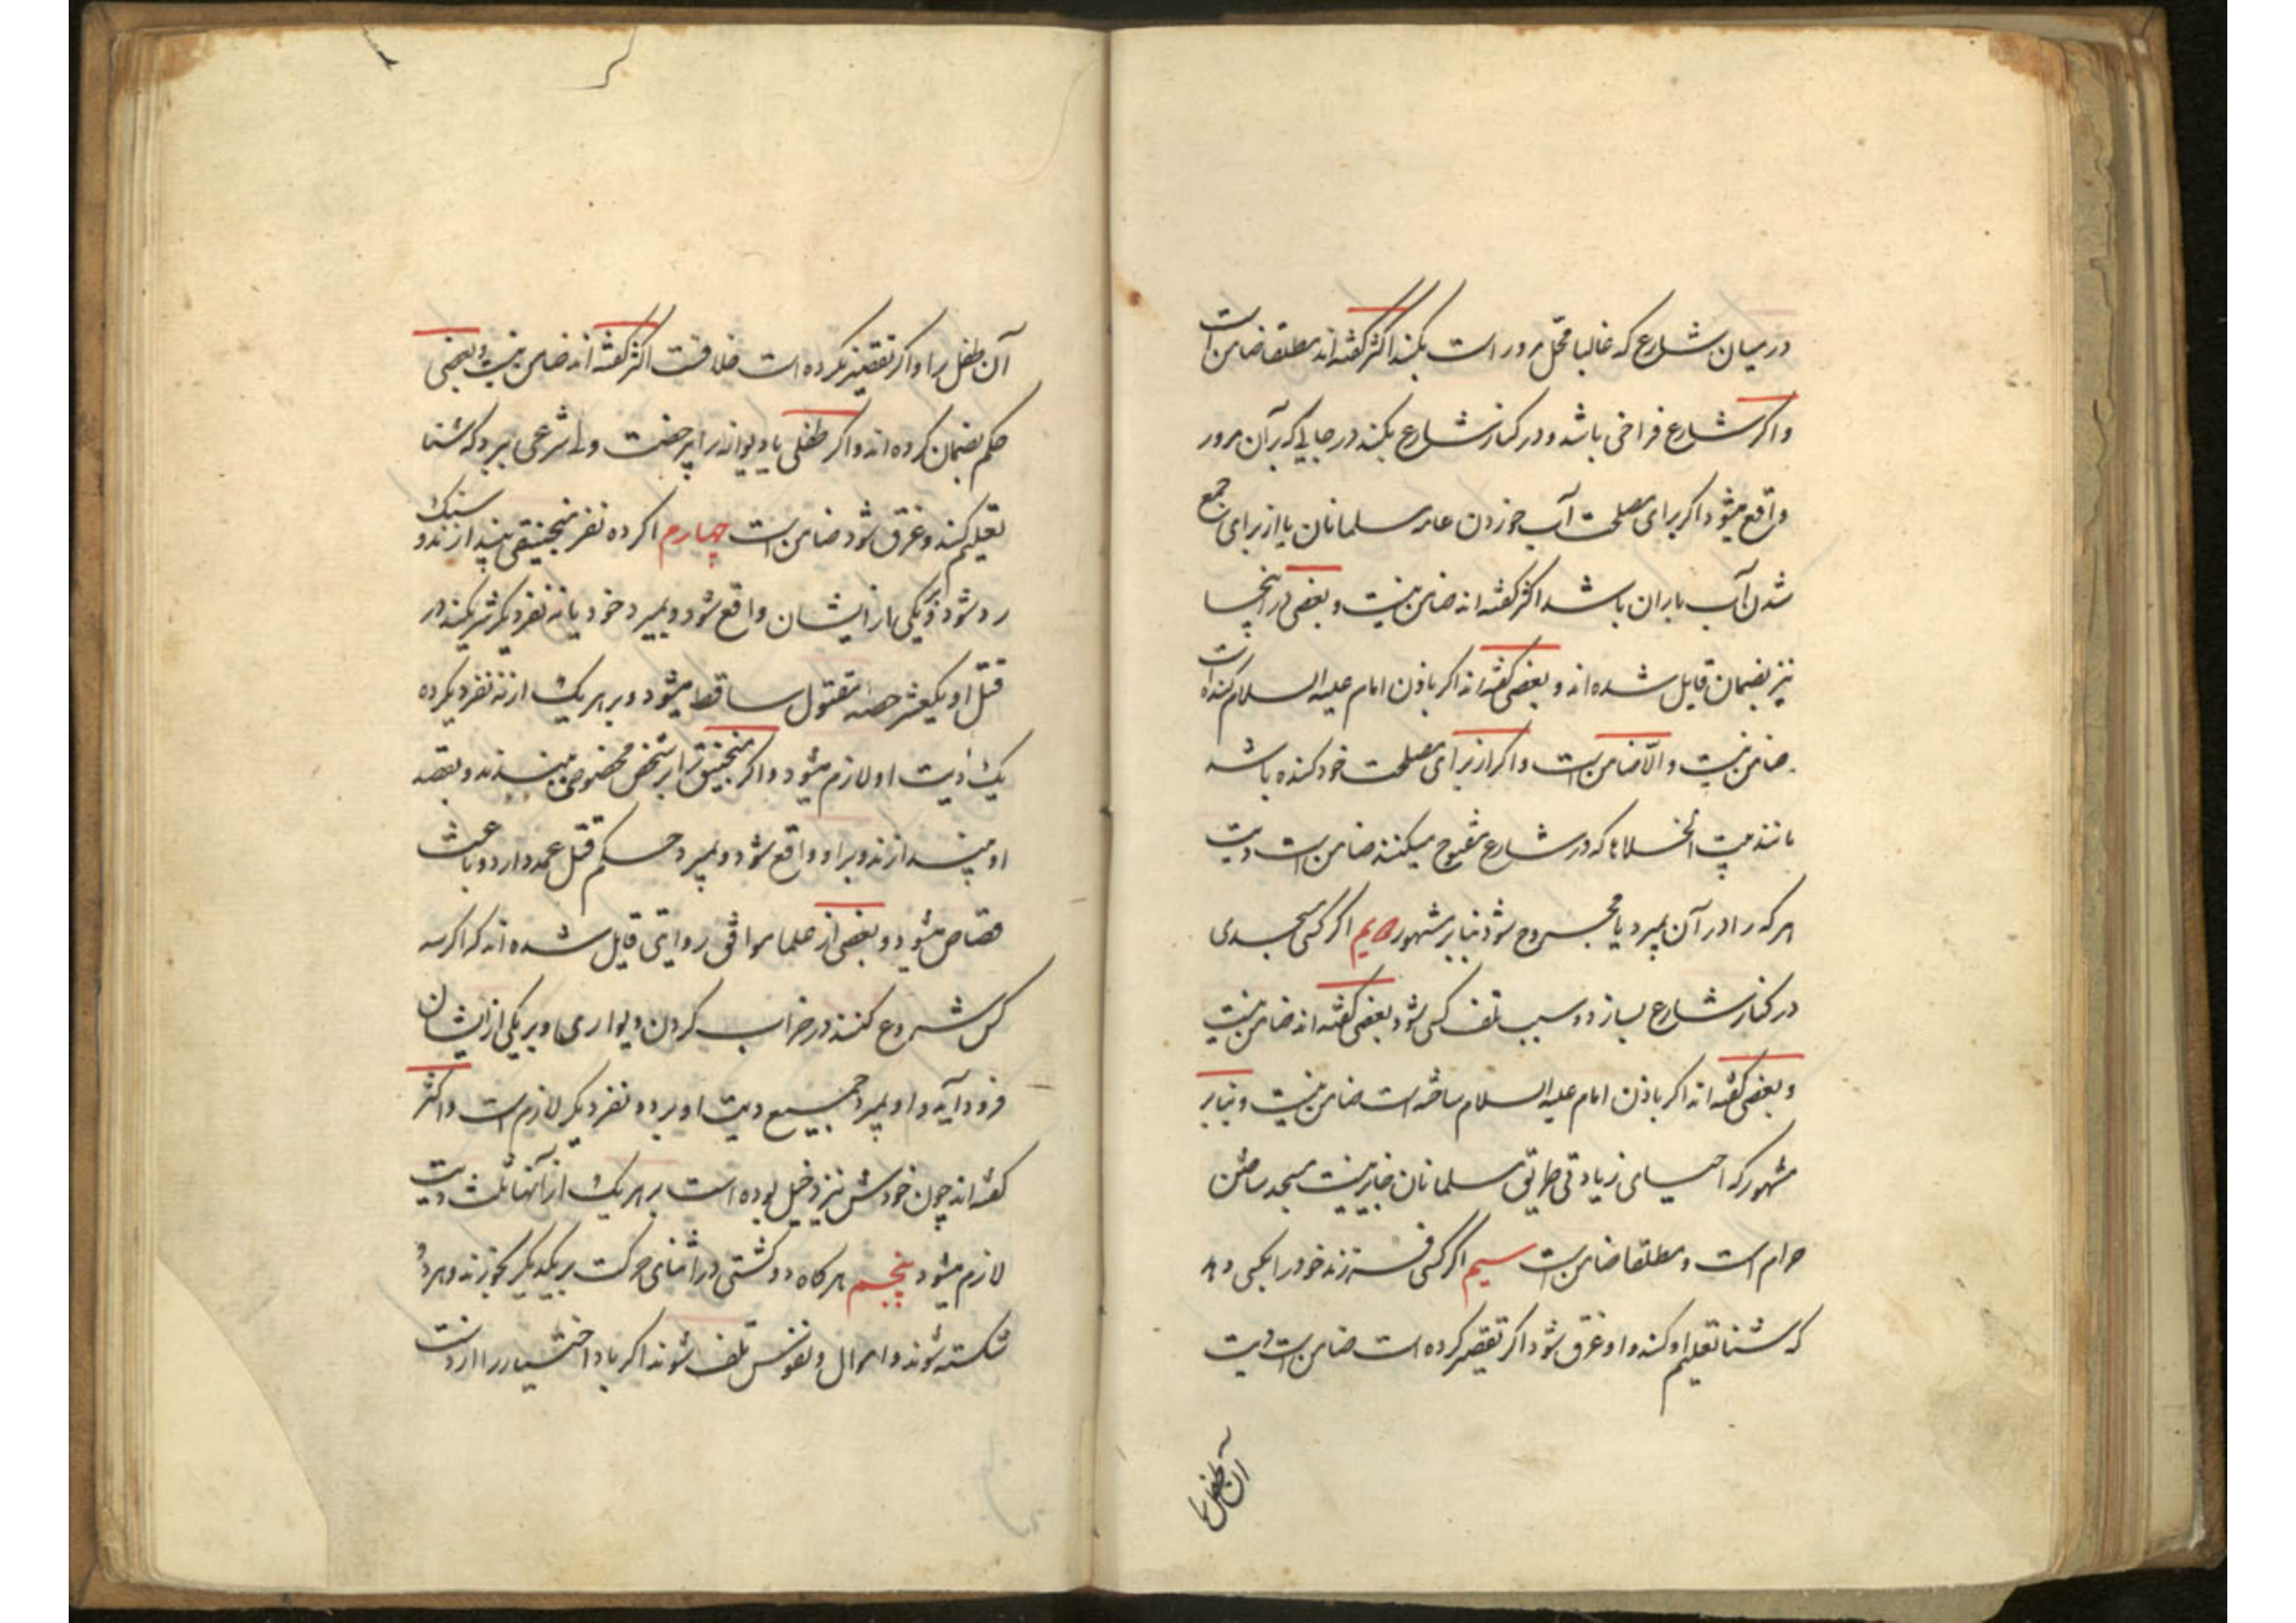 در میان شارع که غالبا محل مرور است بکند اکثر گفته‌اند مطلقا ضامن است
و اگر شارع فراخی باشد و در کنار شارع بکند در جایی که بر آن مرور
واقع میشود اگر برای مصلحت آب خوردن عامه مسلمانان یا از برای جمع
شدن آب باران باشد اکثر گفته اند ضامن نیست و بعضی در اینجا
نیز بضمان قایل شده اند و بعضی گفته اند اگر باذن امام علیه السلام کنده است
ضامن نیست و الّا ضامن است و اگر از برای مصلحت خود کنده باشد
مانند بیت الخلاها که در شارع مفتوح میکنند ضامن است دیت
هر که را در آن بمیرد یا مجروح شود بنابر مشهور دویم اگر کسی مسجدی
در کنار شارع بسازد و سبب تلف کسی شود بعضی گفته اند ضامن نیست
و بعضی گفته اند اگر باذن امام علیه السلام ساخته است ضامن نیست و بنابر
مشهور که احیای زیادتی طریق مسلمانان جایز نیست مسجد ساختن
حرام است و مطلقا ضامن است سیم اگر کسی فرزند خود را بکسی دهد
که شنا تعلیم او کند و او غرق شود اگر تقصیر کرده است ضامن است دیت
آن طفل را
آن طفل را و اگر تقصیر نکرده است خلافست اکثر گفته اند ضامن نیست و بعضی
حکم بضمان کرده اند و اگر طفلی یا دیوانه را بیرخصت ولی شرعی ببرد که شنا
تعلیم کند و غرق شود ضامن است چهارم اگر ده نفر منجنیقی بیندازند و سنک
رد شود و بر یکی از ایشان واقع شود و بمیرد خود با نه نفر دیگر شریکند در
قتل او یکعشر حصه مقتول ساقط میشود و بر هر یک از نه نفر دیگر ده
یک دیت او لازم میشود و اگر منجنیق را بر شخص مخصوصی ببندند و بقصد
او بیندازند و بر او واقع شود و بمیرد حکم قتل عمد دارد و باعث
قصاص میشود و بعضی از علما موافق روایتی قایل شده اند که اگر سه
کس شروع کنند در خراب کردن دیواری و بر یکی از ایشان
فرود آید و او بمیرد جمیع دیت او بر دو نفر دیگر لازم است و اکثر
گفته اند چون خودش نیز دخیل بوده است بر هر یک از آنها ثلث دیت
لازم میشود پنجم هر گاه دو کشتی در اثنای حرکت بر یکدیگر بخورند و هر دو
شکسته شوند و اموال و نفوس تلف شوند اگر با اختیار